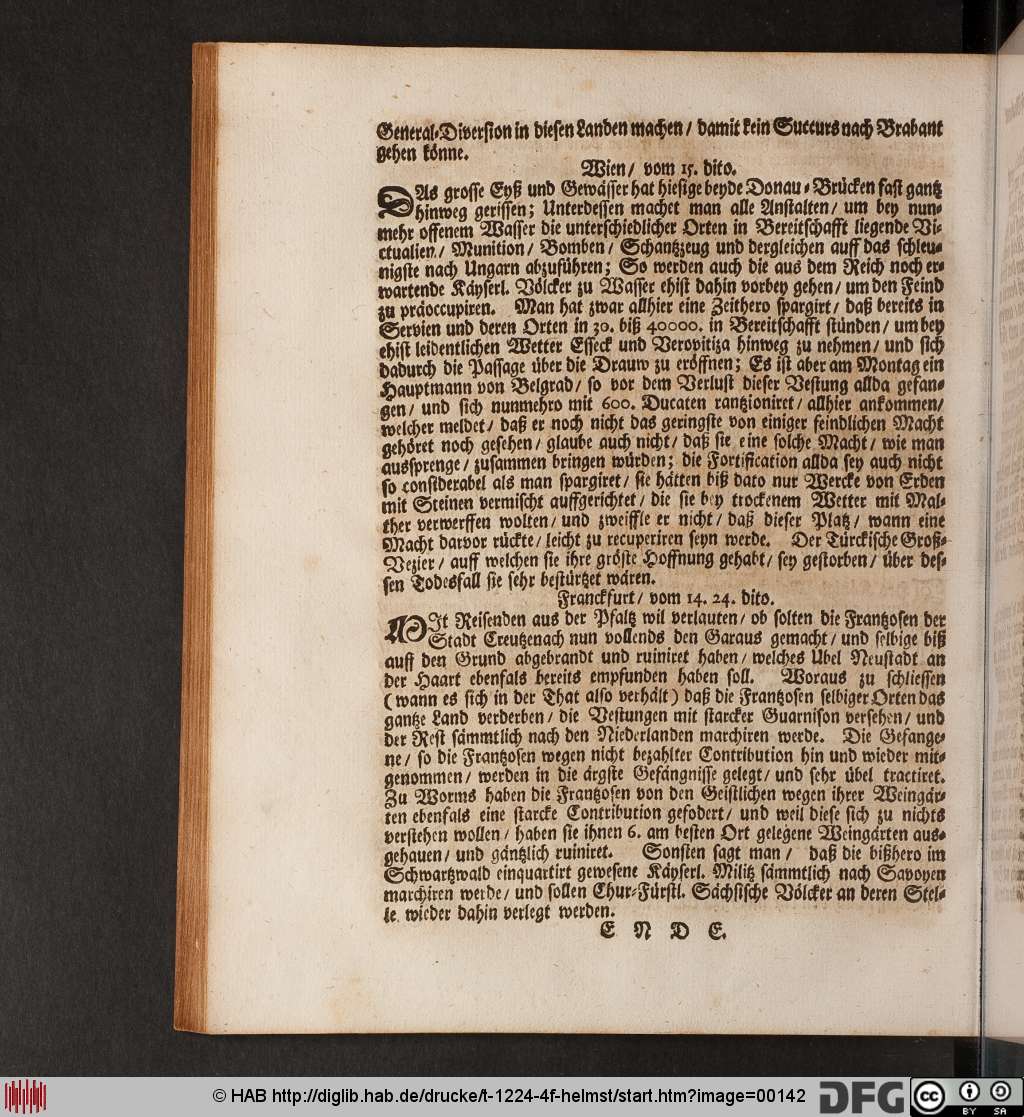 General-Diversion in diesen Landen machen / damit kein Succurs nach Brabant
gehen könne.
Wien / vom 15. dito.
DAs grosse Eyß und Gewässer hat hiesige beyde Donau-Brücken fast gantz
hinweg gerissen; Unterdessen machet man alle Anstalten / um bey nun-
mehr offenem Wasser die unterschiedlicher Orten in Bereitschafft liegende Vi-
ctualien / Munition / Bomben / Schantzzeug und dergleichen auff das schleu-
nigste nach Ungarn abzuführen; So werden auch die aus dem Reich noch er-
wartende Käyserl. Völcker zu Wasser ehist dahin vorbey gehen / um den Feind
zu präoccupiren. Man hat zwar allhier eine Zeithero spargirt / daß bereits in
Servien und deren Orten in 30. biß 40000. in Bereitschafft stünden / um bey
ehist leidentlichen Wetter Esseck und Verovitiza hinweg zu nehmen / und sich
dadurch die Passage über die Drauw zu eröffnen; Es ist aber am Montag ein
Hauptmann von Belgrad / so vor dem Verlust dieser Vestung allda gefan-
gen / und sich nunmehro mit 600. Ducaten rantzioniret / allhier ankommen /
welcher meldet / daß er noch nicht das geringste von einiger feindlichen Macht
gehöret noch gesehen / glaube auch nicht / daß sie eine solche Macht / wie man
aussprenge / zusammen bringen würden; die Fortification allda sey auch nicht
so considerabel als man spargiret / sie hätten biß dato nur Wercke von Erden
mit Steinen vermischt auffgerichtet / die sie bey trockenem Wetter mit Mal-
ther verwerffen wolten / und zweiffle er nicht / daß dieser Platz / wann eine
Macht darvor rückte / leicht zu recuperiren seyn werde. Der Türckische Groß-
Vezier / auff welchen sie ihre gröste Hoffnung gehabt / sey gestorben / über des-
sen Todesfall sie sehr bestürtzet wären.
Franckfurt / vom 14. 24. dito.
MIt Reisenden aus der Pfaltz wil verlauten / ob solten die Frantzosen der
Stadt Creutzenach nun vollends den Garaus gemacht / und selbige biß
auff den Grund abgebrandt und ruiniret haben / welches Übel Neustadt an
der Haart ebenfals bereits empfunden haben soll. Woraus zu schliessen
(wann es sich in der That also verhält) daß die Frantzosen selbiger Orten das
gantze Land verderben / die Vestungen mit starcker Guarnison versehen / und
der Rest sämmtlich nach den Niederlanden marchiren werde. Die Gefange-
ne / so die Frantzosen wegen nicht bezahlter Contribution hin und wieder mit-
genommen / werden in die ärgste Gefängnisse gelegt / und sehr übel tractiret.
Zu Worms haben die Frantzosen von den Geistlichen wegen ihrer Weingär-
ten ebenfals eine starcke Contribution gefodert / und weil diese sich zu nichts
verstehen wollen / haben sie ihnen 6. am besten Ort gelegene Weingärten aus-
gehauen / und gäntzlich ruiniret. Sonsten sagt man / daß die bißhero im
Schwartzwald einquartirt gewesene Käyserl. Militz sämmtlich nach Savoyen
marchiren werde / und sollen Chur-Fürstl. Sächsische Völcker an deren Stel-
le wieder dahin verlegt werden.
E N D E.
© HAB http://diglib.hab.de/drucke/t-1224-4f-helmst/start.htm?image=00142
DFG
cc BY SA